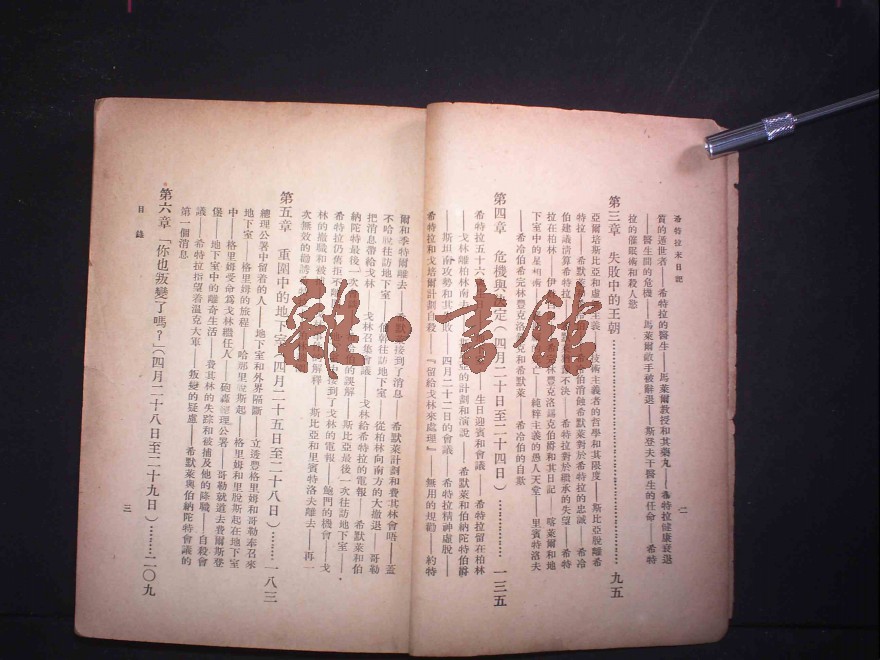 希特拉末日記
二
質的遁世者——希特拉的醫生——馬萊爾教授和其藥丸——希特拉健康衰退
——醫生間的危機——馬萊爾敵手被辭退——斯登夫干醫生的任命——希特
拉的催眠術和殺人慾
第三章 失敗中的王朝⋯⋯⋯⋯九五
亞爾培斯比亞和虛無主義——技術主義者的哲學和其限度——斯比亞脫離希
特拉——希默萊 伯消蝕希默萊對於希特拉的忠誠——希冷
伯建議清算希特拉 不決——希特拉對於繼承的失望——希特
拉在柏林——伊 林豐克洛錫克伯爵和其日記——喀萊爾和地
下室中的星相術 亡——純粹主義的愚人天堂——里賓特洛夫
——希冷伯希完林豐克洛 克和希默萊——希冷伯的自欺
第四章 危機與決定(四月二十日至二十四日)⋯⋯⋯⋯一三五
希特拉五十六 生日迎賓和會議——希特拉留在柏林
——戈林離柏林南 亞的計劃和演說——希默萊和伯納陀特伯爵
——斯坦南攻勢和其 敗——四月二十二日的會議——希特拉精神虛脫——
希特拉和戈培爾計劃自殺——『留給戈林來處理』——無用的規勸——約特
爾和季特爾離去——希默 接到了消息——希默萊計劃和費其林會晤——蓋
不哈脫往訪地下室 伯朝往訪地下室——從柏林向南方的大撤退——哥勒
把消息帶給戈林 戈林召集會議——戈林給希特拉的電報——希默萊和伯
納陀特最後一次 的誤解——斯比亞最後一次往訪地下室——
希特拉仍舊拒不 中接到了戈林的電報——鮑門的機會——戈
林的繼職和被 的解釋——斯比亞和里賓特洛夫離去——再一
次無效的勸誘
第五章 重圍中的地下室(四月二十五日至二十八日)⋯⋯一八三
總理公署中留着的人——地下室和外界隔斷——立透豐格里姆和哥勒奉召來
地下室——格里姆的旅程——哈那里脫斯起——格里姆和里脫斯起在地下室
中——格里姆受命爲戈林繼任人——砲轟總理公署——哥勒就道去費爾斯登
堡——地下室中的離奇生活——費其林的失踪和被捕及他的降職——自殺會
議——希特拉指望着溫克大軍——叛變的疑慮——希默萊與伯納陀特會議的
第一個消息
第六章「你也叛變了嗎?」(四月二十八日至二十九日)⋯⋯二〇九
目錄
三
雜·書館